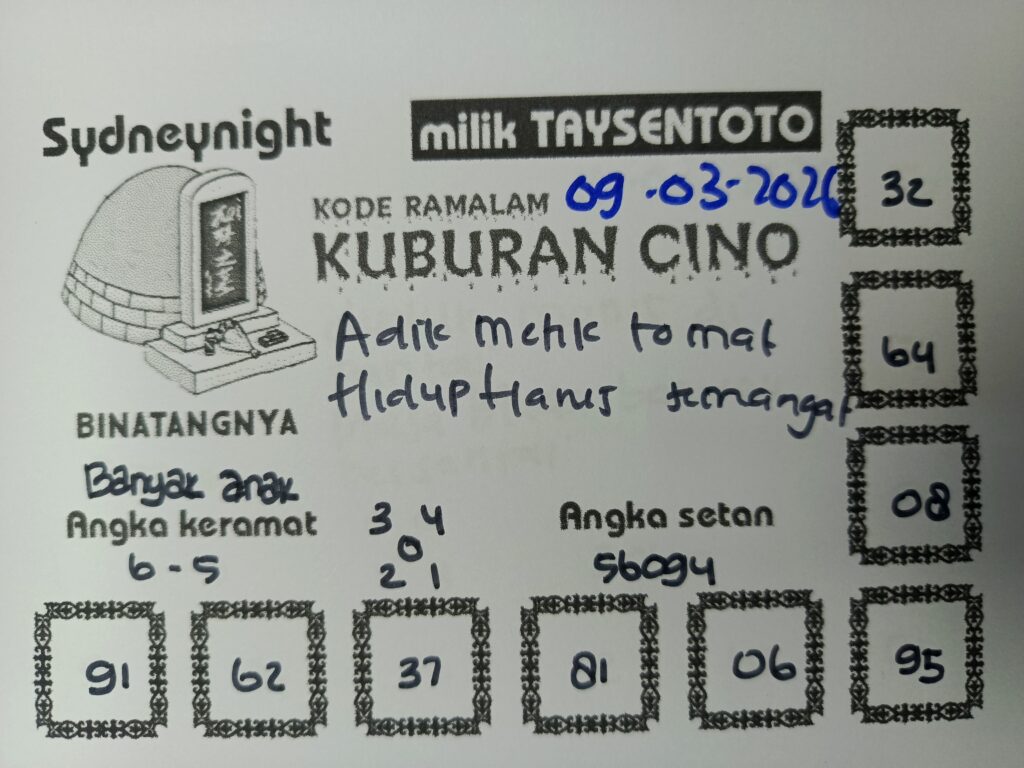 Sydneynight
milik TAYSENTOTO
KODE RAMALAM 09-03-2026
KUBURAN CINO
Adik Metik tomat
Hidup Harus semangat
BINATANGNYA
Banyak anak
Angka keramat
6 - 5
3 4
0
2 1
Angka setan
56094
32
64
08
95
91 62 37 81 06